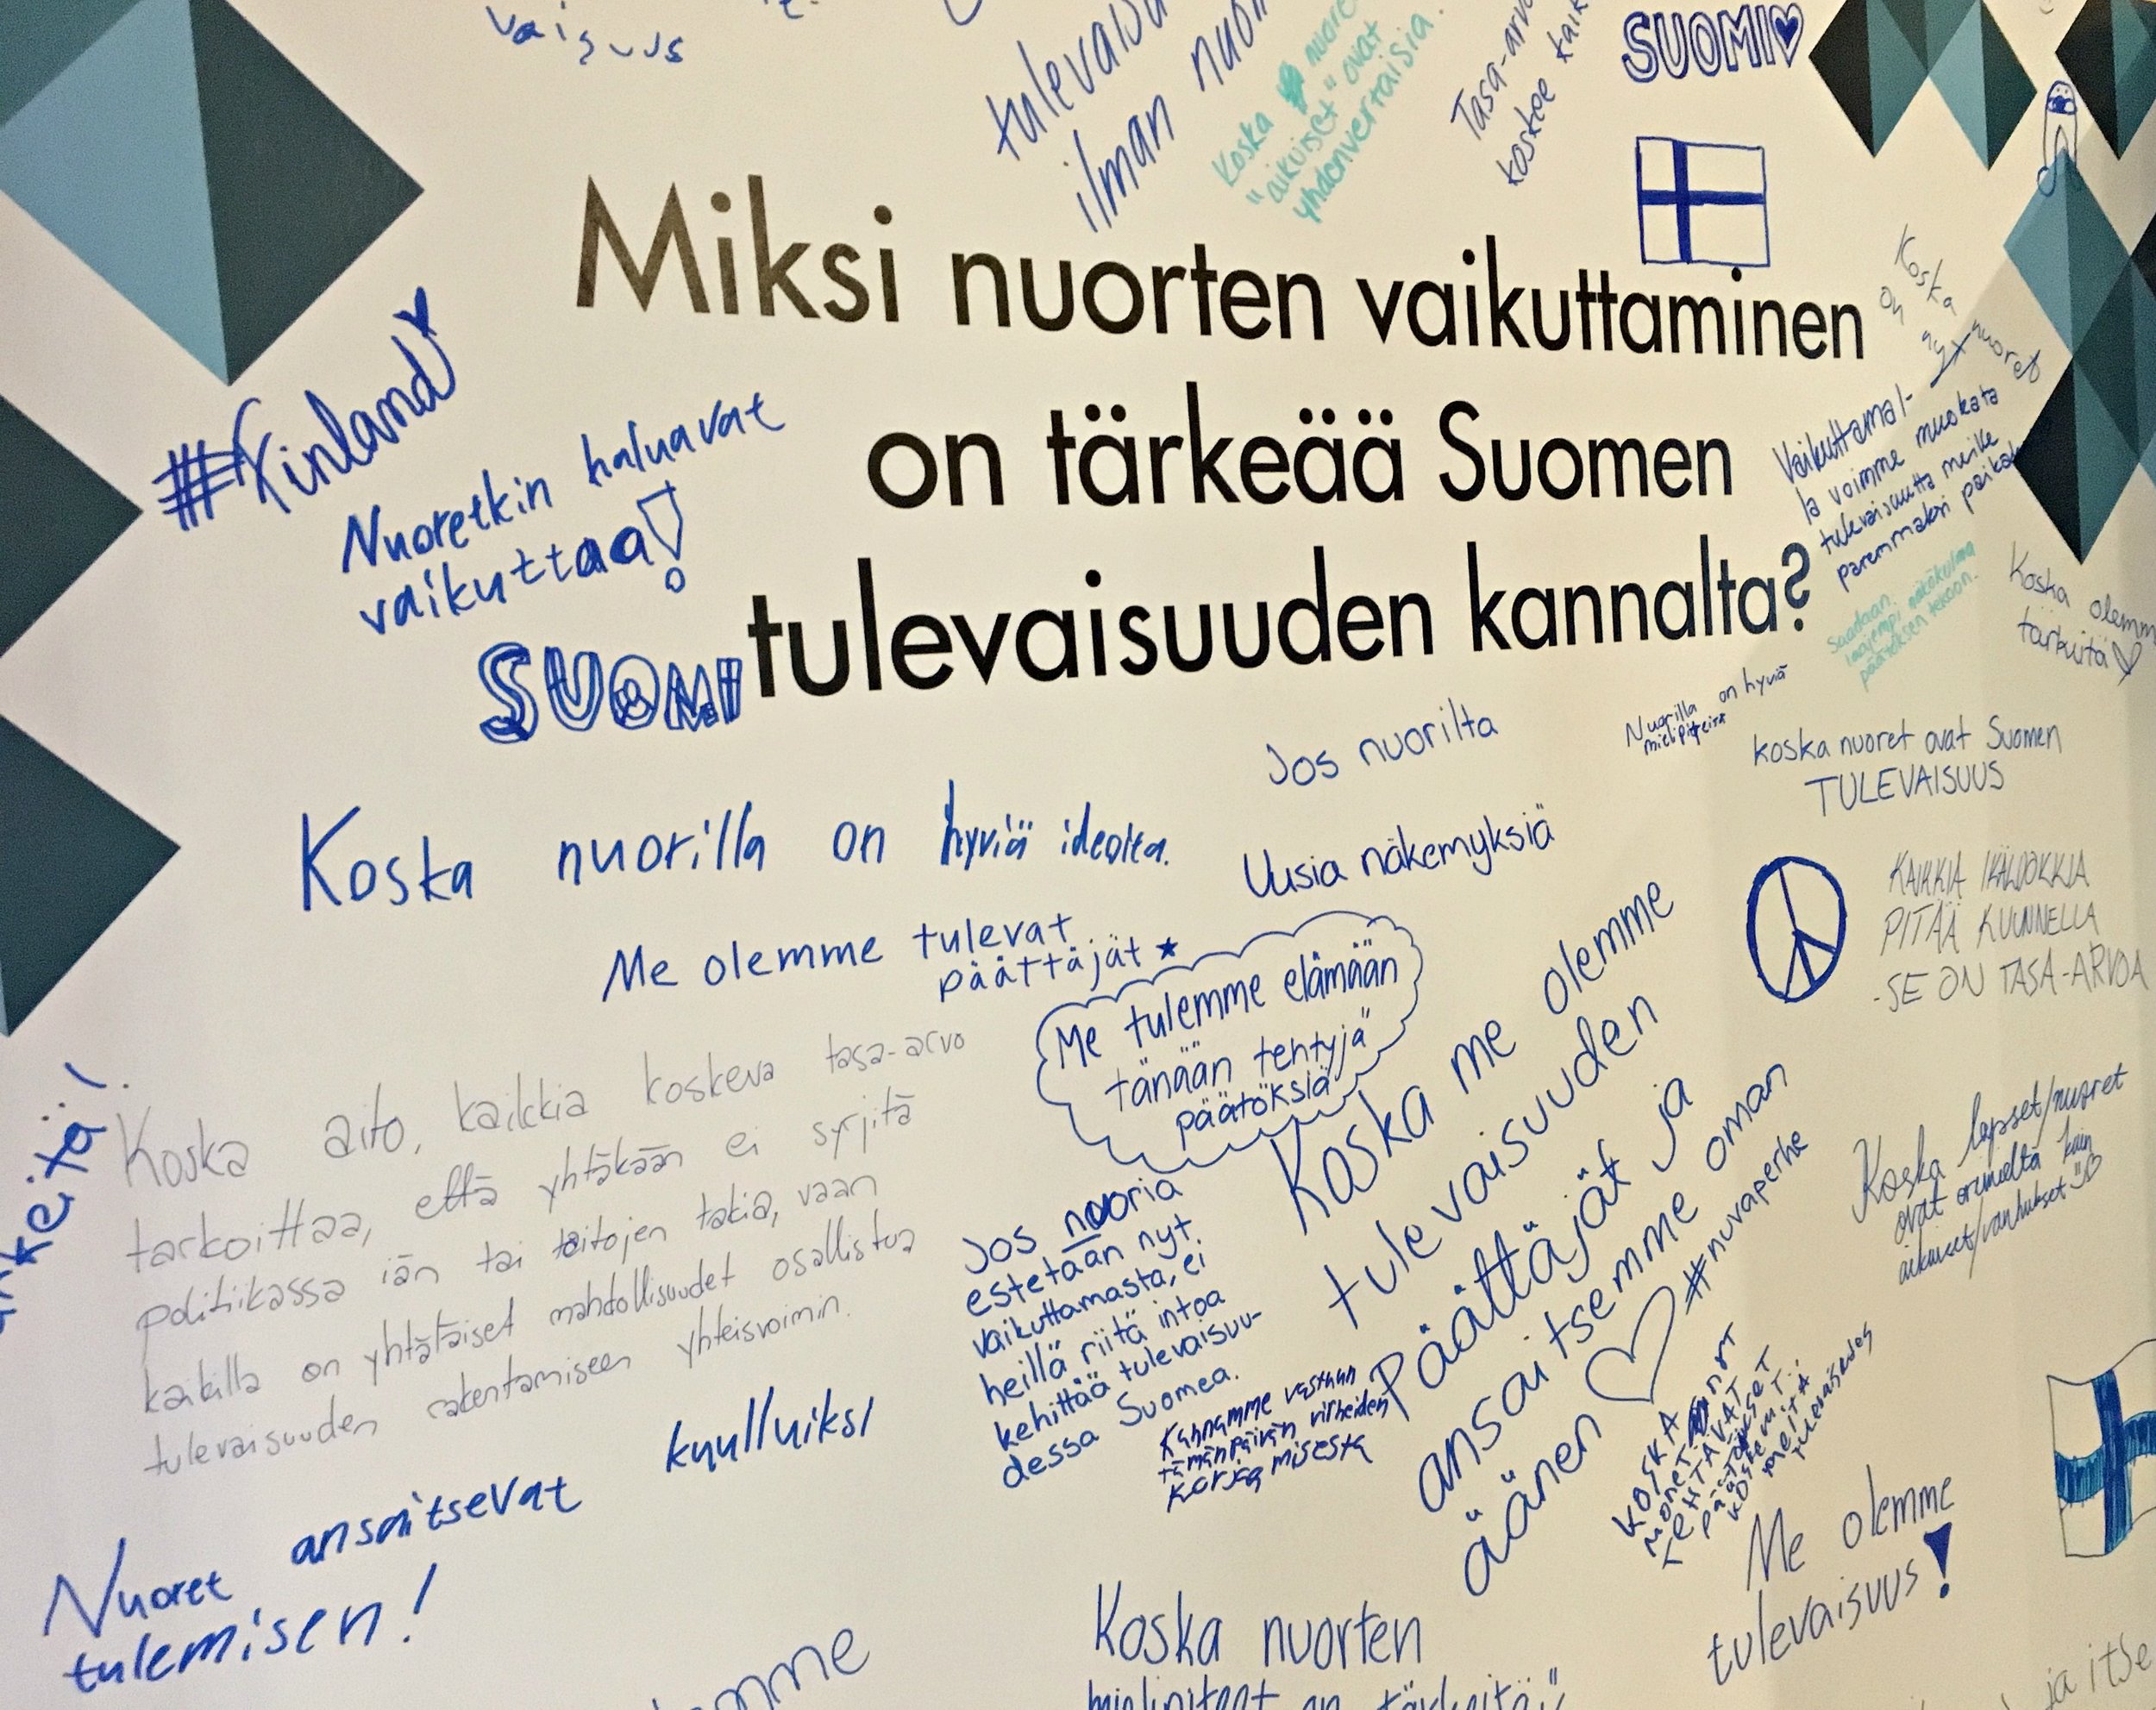 vaisuus
ilman
Koska
"aikuiset" ovat
yhdenvertaisia.
Tasa-arvo
koskee
SUOMI
Miksi nuorten vaikuttaminen
on tärkeää Suomen
tulevaisuuden kannalta?
#Finland
Nuoretkin haluavat
vaikuttaa!
SUOMI
Koska nuoret
on nyt
Vaikuttamal-
la voimme muokata
tulevaisuutta meille
paremmaksi
Saadaan
laajempi näkökulma
päätöksen tekoon.
Koska olemme
tärkeitä
Nuorilla on hyviä
mielipiteitä
koska nuoret ovat Suomen
TULEVAISUUS
Jos nuorilta
Uusia näkemyksiä
Koska nuorilla on hyviä ideoita.
Me olemme tulevat
päättäjät
"Me tulemme elämään
tänään tehtyjä"
päätöksiä
KAIKKIA IKÄLUOKKIA
PITÄÄ KUUNNELLA
-SE ON TASA-ARVOA
Koska aito, kaikkia koskeva tasa-arvo
tarkoittaa, että yhtäkään ei syrjitä
politiikassa iän tai taitojen takia, vaan
kaikilla on yhtäläiset mahdollisuudet osallistua
tulevaisuuden rakentamiseen yhteisvoimin.
Jos nuoria
estetään nyt
vaikuttamasta, ei
heillä riitä intoa
kehittää tulevaisuu-
dessa Suomea.
Kannamme vastuun
tämänpäivän virheiden
korjaamisesta
Koska me olemme
tulevaisuuden
päättäjät ja
ansaitsemme oman
äänen
#nuvaperhe
Koska lapset/nuoret
ovat
aikuiset/vanhukset
KOSKA
TEHTÄVÄT
PÄÄTÖKSET
meitä
tulevaisuudessa
Nuoret ansaitsevat kuulluiksi
tulemisen!
Me olemme
tulevaisuus!
Koska nuorten
mielipiteet on tärkeitä
ja itse